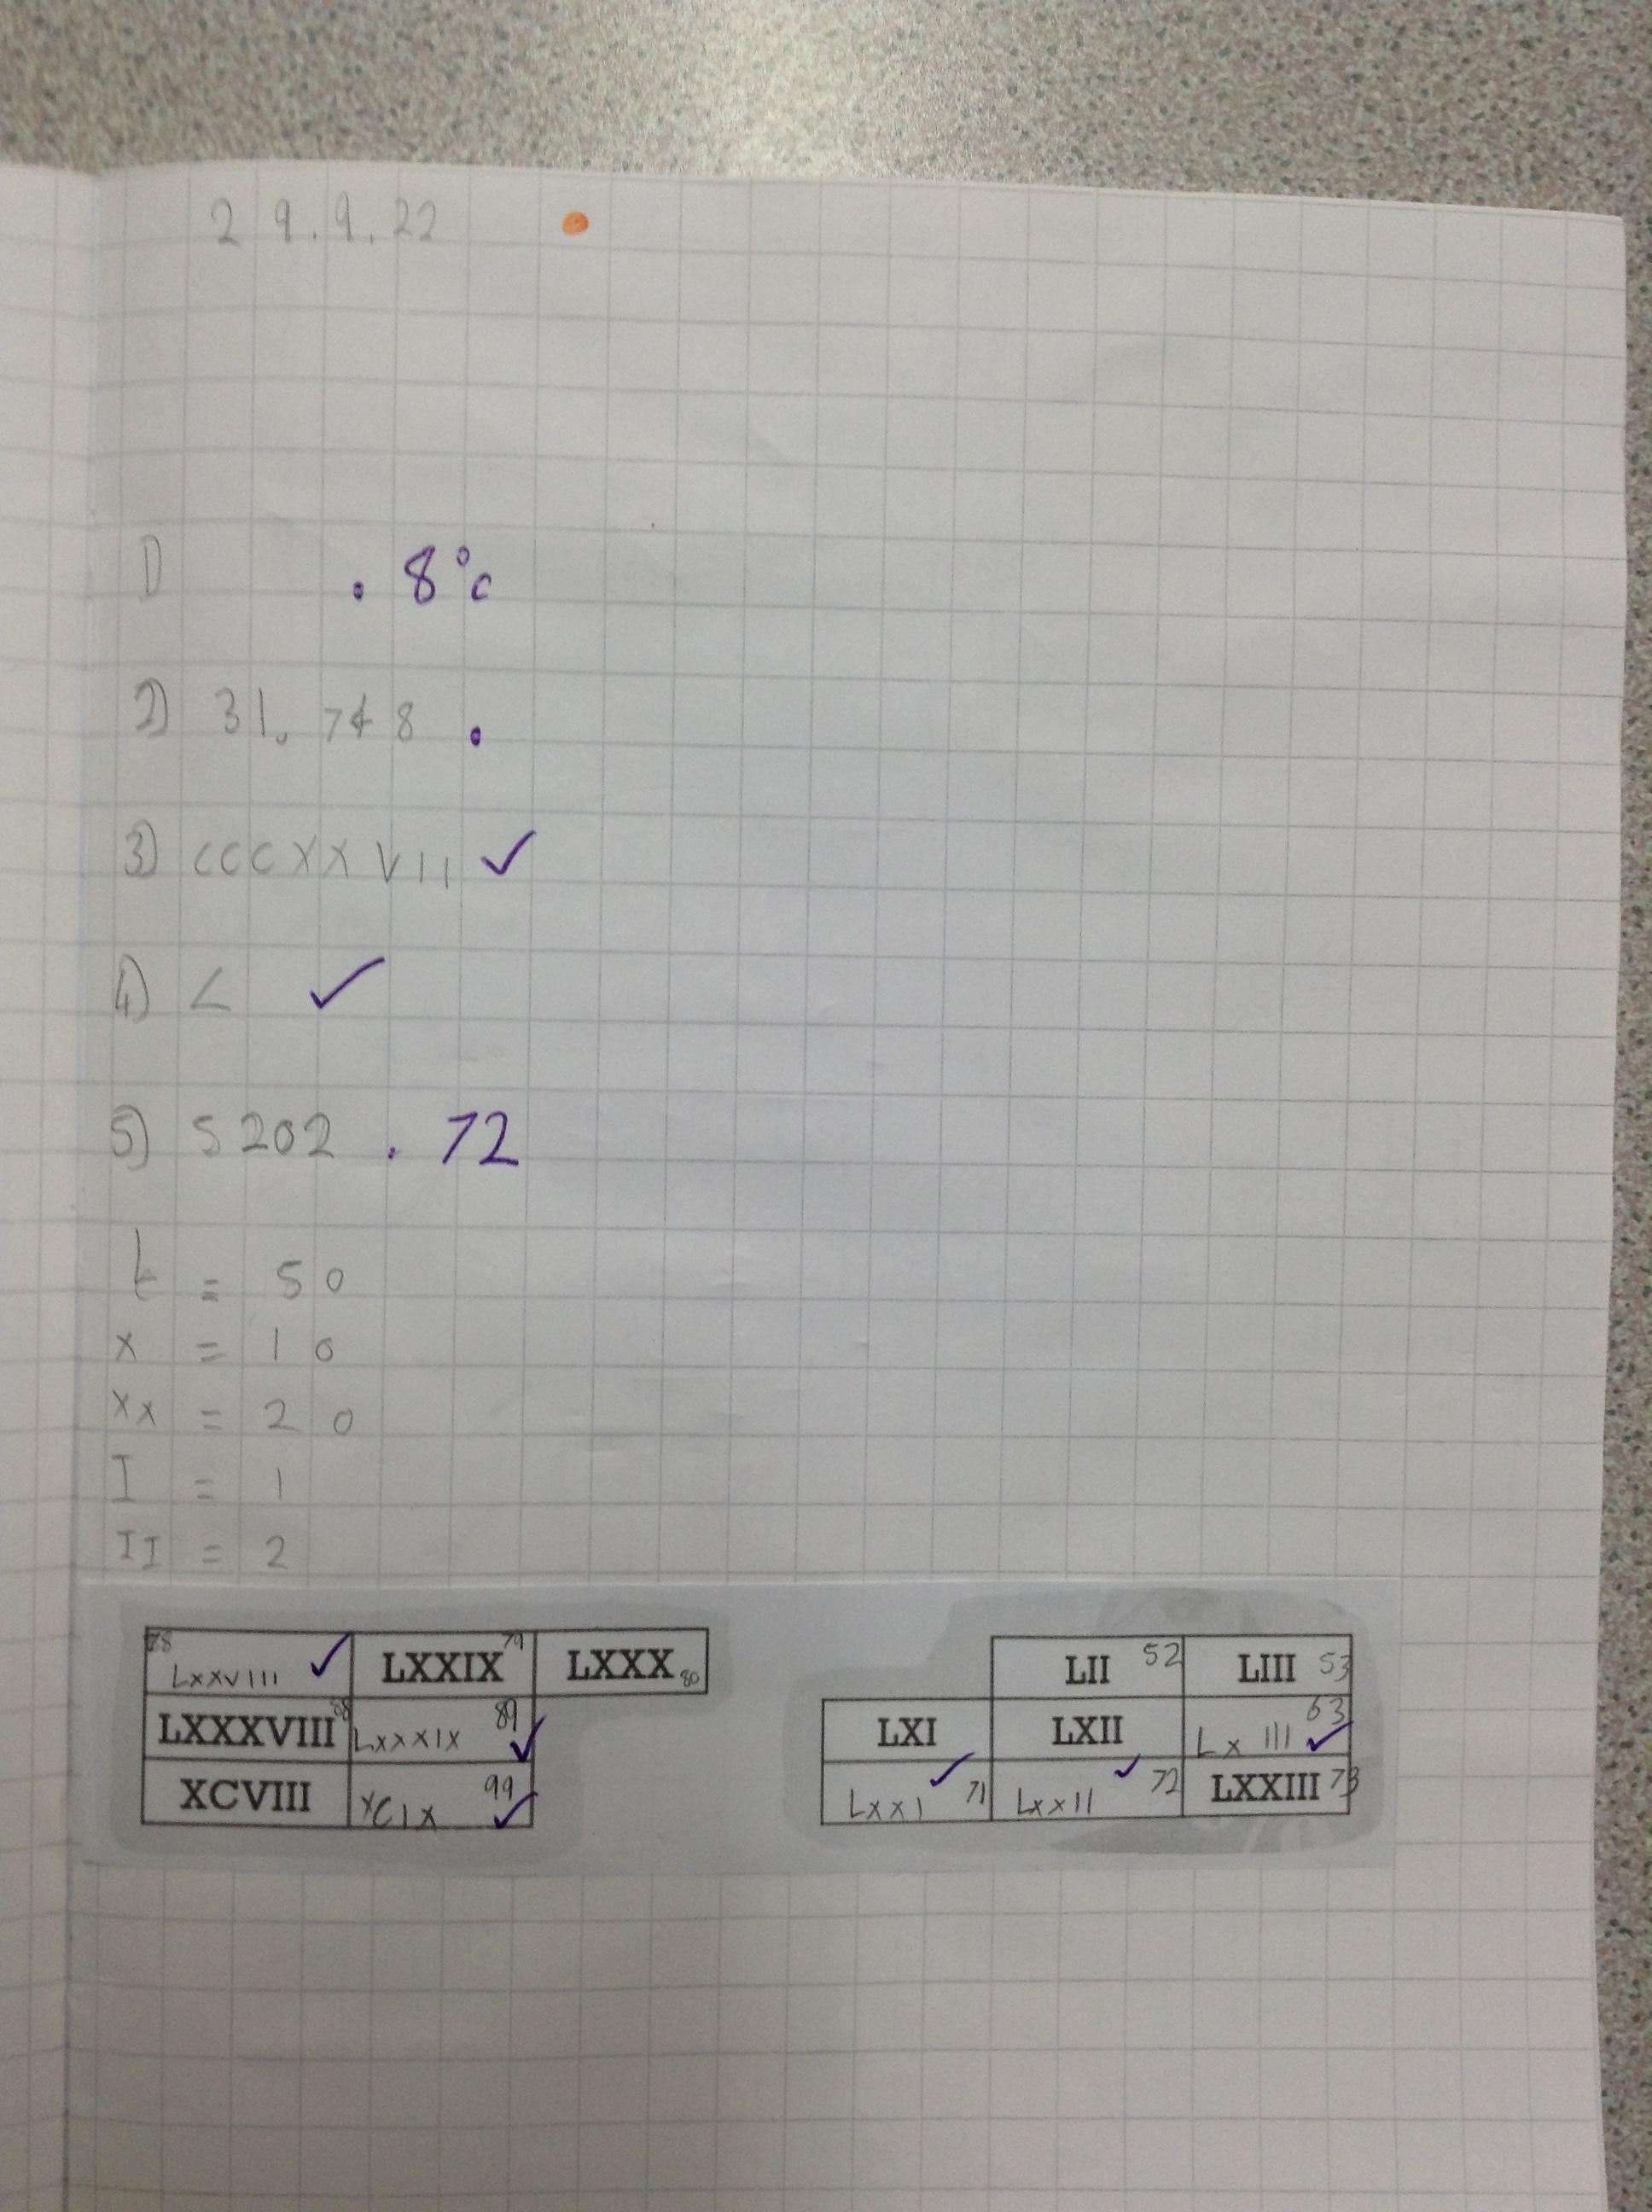 29.9.22
1) . 8°c
2) 31.748 .
3) CCCXXVII ✓
4) < ✓
5) 5202 . 72
L = 50
X = 10
XX = 20
I = 1
II = 2
78 LXXVIII ✓ LXXIX 79 LXXX 80
LXXXVIII 88 LXXXIX 89 ✓
XCVIII XCIX 99 ✓
LII 52 LIII 53
LXI LXII LXIII 63 ✓
LXXI ✓ 71 LXXII ✓ 72 LXXIII 73